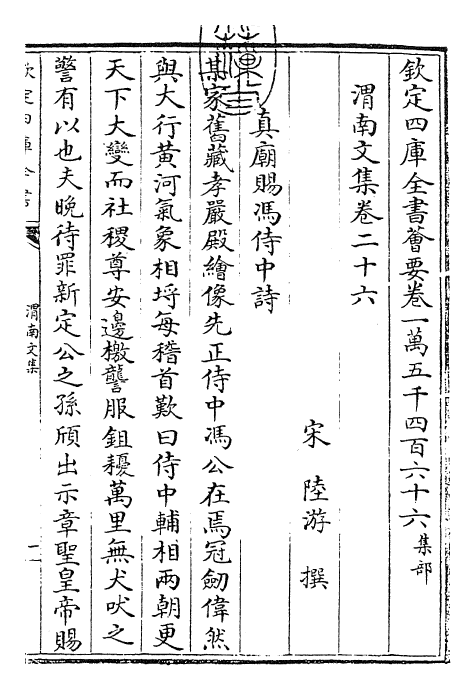 欽定四庫全書薈要卷一萬五千四百六十六集部
渭南文集卷二十六
宋　陸游　撰
真廟賜馮侍中詩
某家舊藏孝嚴殿繪像先正侍中馮公在焉冠劒偉然
與大行黄河氣象相埒每稽首歎曰侍中輔相兩朝更
天下大變而社稷尊安邊檄讋服鉏耰萬里無犬吠之
警有以也夫晚待罪新定公之孫頎出示章聖皇帝賜
欽定四庫全書
渭南文集
一